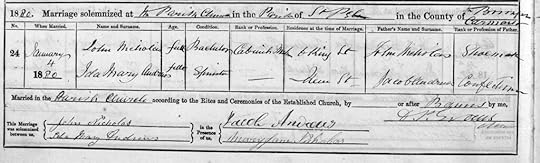 1880. Marriage solemnized at the Parish Church in the Parish of St in the County of
When Married. Name and Surname. Age. Condition. Rank or Profession. Residence at the time of Marriage. Father's Name and Surname. Rank or Profession of Father.
24 January 4 1880 John Nicholas full Bachelor 6 King St John Nicholas Shoemaker
Ida Mary Andrews full Spinster Queen St Jacob Andrews
Married in the Parish Church according to the Rites and Ceremonies of the Established Church, by or after Banns by me,
This Marriage was solemnized between us, John Nicholas in the Presence of us, Jacob Andrews
Ida Mary Andrews Mary Jane Nicholas